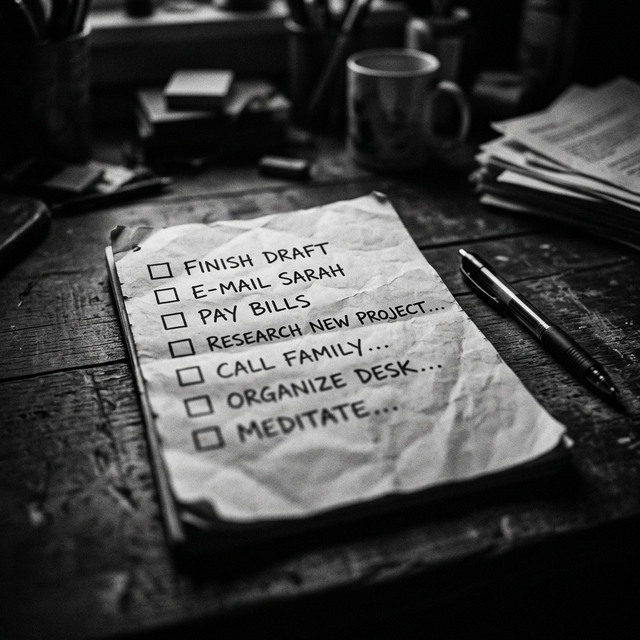 FINISH DRAFT
E-MAIL SARAH
PAY BILLS
RESEARCH NEW PROJECT...
CALL FAMILY...
ORGANIZE DESK...
MEDITATE...